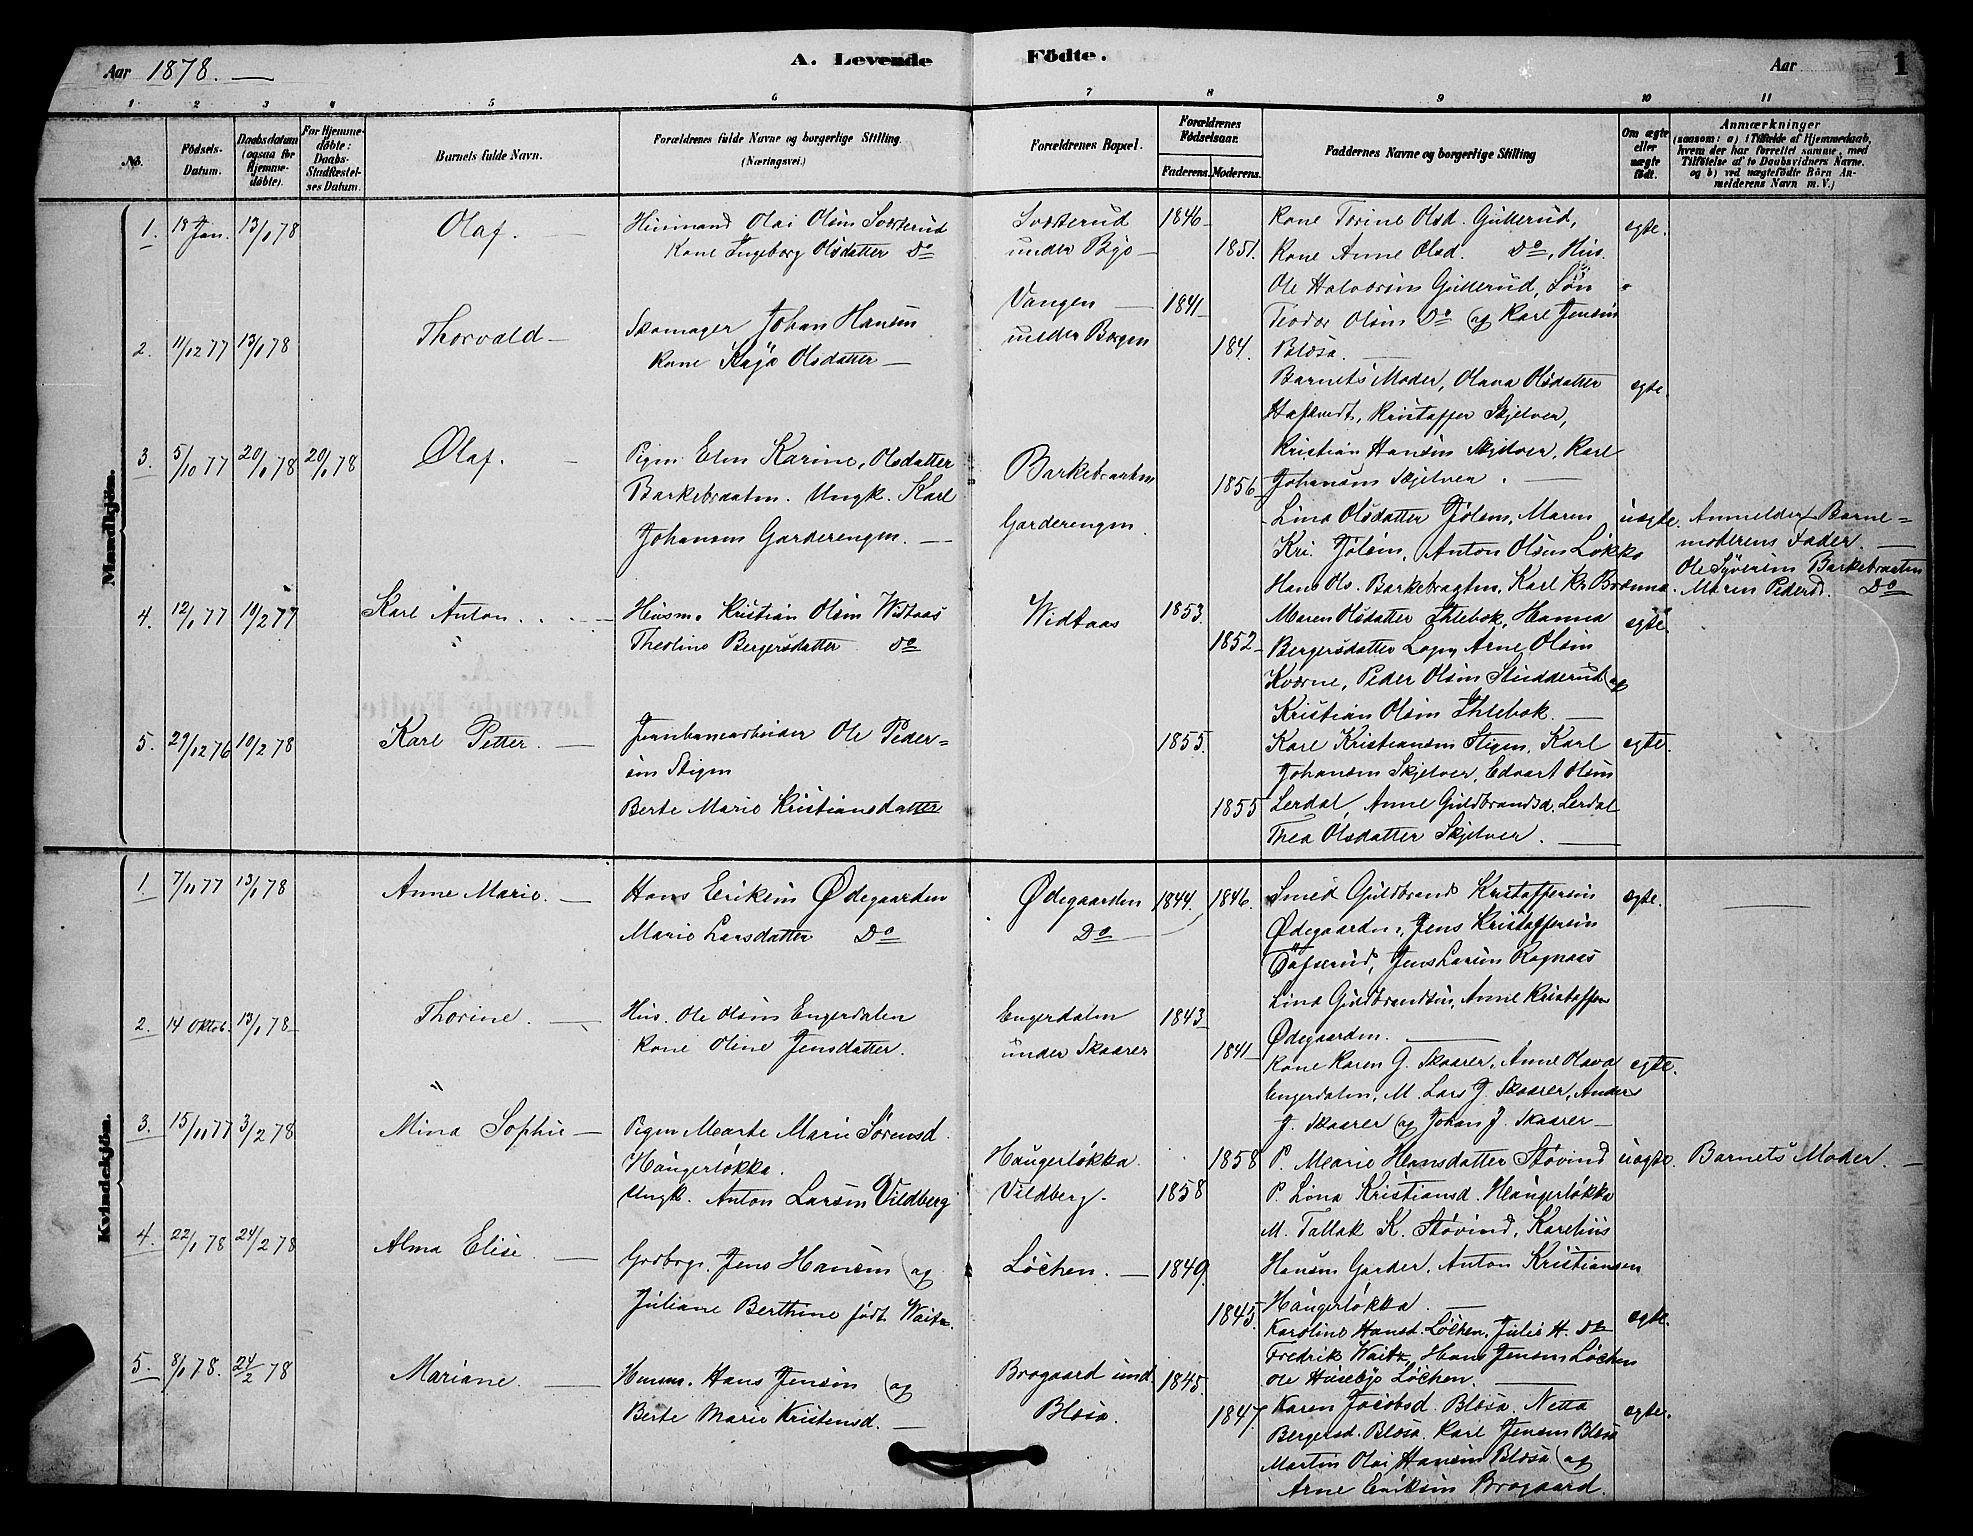 Aar 1878. —
A. Levende Födte.
Aar
1
1 2 3 4 5 6 7 8 9 10 11
No.
Födsels-Datum.
Daabsdatum (ogsaa for Hjemme-döbte).
For Hjemme-döbte: Daabs-Stadfæstel-ses Datum.
Barnets fulde Navn.
Forældrenes fulde Navne og borgerlige Stilling. (Næringsvei.)
Forældrenes Bopæl.
Forældrenes Födselsaar.
Faderens. Moderens.
Faddernes Navne og borgerlige Stilling
Om ægte eller uægte födt.
Anmærkninger
(saasom: a) i Tilfælde af Hjemmedaab, hvem der har forrettet samme, med Tilföielse af to Daabsvidners Navne. og b) ved uægtefödte Börn An-melderens Navn m. V.)
Mandkjön.
1. 18 Jan. 13/1 78 Olaf. —
Husmand Olai Olsen Svesterud
Kone Ingeborg Olsdatter Do
Svesterud
under Bjø —
1846 —
1851.
Kone Torine Olsd. Gullerud,
Kone Anne Olsd. Do, Hus.
Ole Halvorsen Gullerud, Søn
Teodor Olsen Do og Karl Jensen
Blæsa. —
egte.
2. 11/12 77 13/1 78 Thorvald —
Skomager Johan Hansen
Kone Kaja Olsdatter —
Vangen —
under Borgen
1841
184.
Barnets Moder, Olava Olsdatter
Kristaffer Skjelver,
Kristian Hansen Skjelver, Karl
Johansen Skjelver. —
egte.
3. 5/10 77 20/1 78 20/1 78 Olaf. —
Pigen Elen Karine, Olsdatter
Barkebraaten. Ungk. Karl
Johansen Garderengen. —
Barkebraaten
Garderengen.
1856
Lina Olsdatter Jølsen, Maren
Kri. Jølsen, Anton Olsen Løkka
Hans Ols. Barkebragten, Karl Kr. Brænna.
uegte.
Anmelder Barne=
moderens Fader. —
Ole Syversen Barkebraaten
Maren Pedersd. Do
4. 12/1 77 10/2 77 Karl Anton. —
Husm. Kristian Olsen Widtaas
Theoline Bergersdatter Do
Widtaas
1853.
1852
Maren Olsdatter Ihlebok, Hanna
Bergersdatter Arne Olsen
Kværne, Peder Olsen Studderud og
Kristian Olsen Ihlebok. —
egte.
5. 29/12 76 10/2 78 Karl Petter. —
Jernbanearbeider Ole Peder=
sen Stigen
Berte Marie Kristiansdatter
1855.
1855
Karl Kristiansen Stigen, Karl
Johansen Skjelver, Edvart Olsen
Lerdal, Anne Guldbrandsd. Lerdal
Thea Olsdatter Skjelver. —
egte.
Kvindekjön.
1. 7/11 77 13/1 78 Anne Marie. —
Hans Eriksen Ødegaarden
Marie Larsdatter Do
Ødegaarden
Do
1844.
1846.
Smed Guldbrand Kristaffersen
Ødegaarden, Jens Kristaffersen
Jens Larsen Ragnaas
Lina Guldbrandsen, Anne Kristaffers
Ødegaarden. —
egte.
2. 14 Oktob. 13/1 78 — Thorine. —
Hus. Ole Olsen Engerdalen
Kone Oline Jensdatter.
Engerdalen
under Skaarer
1843
1841
Kone Karen G. Skaarer, Anne Olava
Engerdalen, M. Lars J. Skaarer, Anders
J. Skaarer og Johan J. Skaarer —
egte.
3. 15/11 77 3/2 78 Mina Sophie —
Pigen Marte Marie Sørensd.
Haugerløkka.
Ungk. Anton Larsen Vildberg
Haugerløkka.
Vildberg.
1858
1858
P. Marie Hansdatter Støvind
P. Lina Kristiansd. Haugerløkka
M. Tallak K. Støvind, Karelius
Hansen Garder, Anton Kristiansen
Haugerløkka. —
uegte.
Barnets Moder. —
4. 22/1 78 24/2 78 Alma Elise. —
Grdbrgr. Jens Hansen og
Juliane Berthine født Waitz.
Løchen. —
1849.
1845.
Karoline Hansd. Løchen, Julie H. Do
Fredrik Waitz, Hans Jensen Løchen
Ole Husebye Løchen. —
egte.
5. 8/1 78. 24/2 78 Mariane. —
Husm. Hans Jensen og
Berte Marie Kristensd. —
Brogaard und.
Blæsa.
1845.
1847.
Karen Jacobsd. Blæsa. Netta
Bergersd. Blæsa. Karl Jensen Blæsa
Martin Olai Hansen Blæsa og
Arne Eriksen Brogaard.
egte.